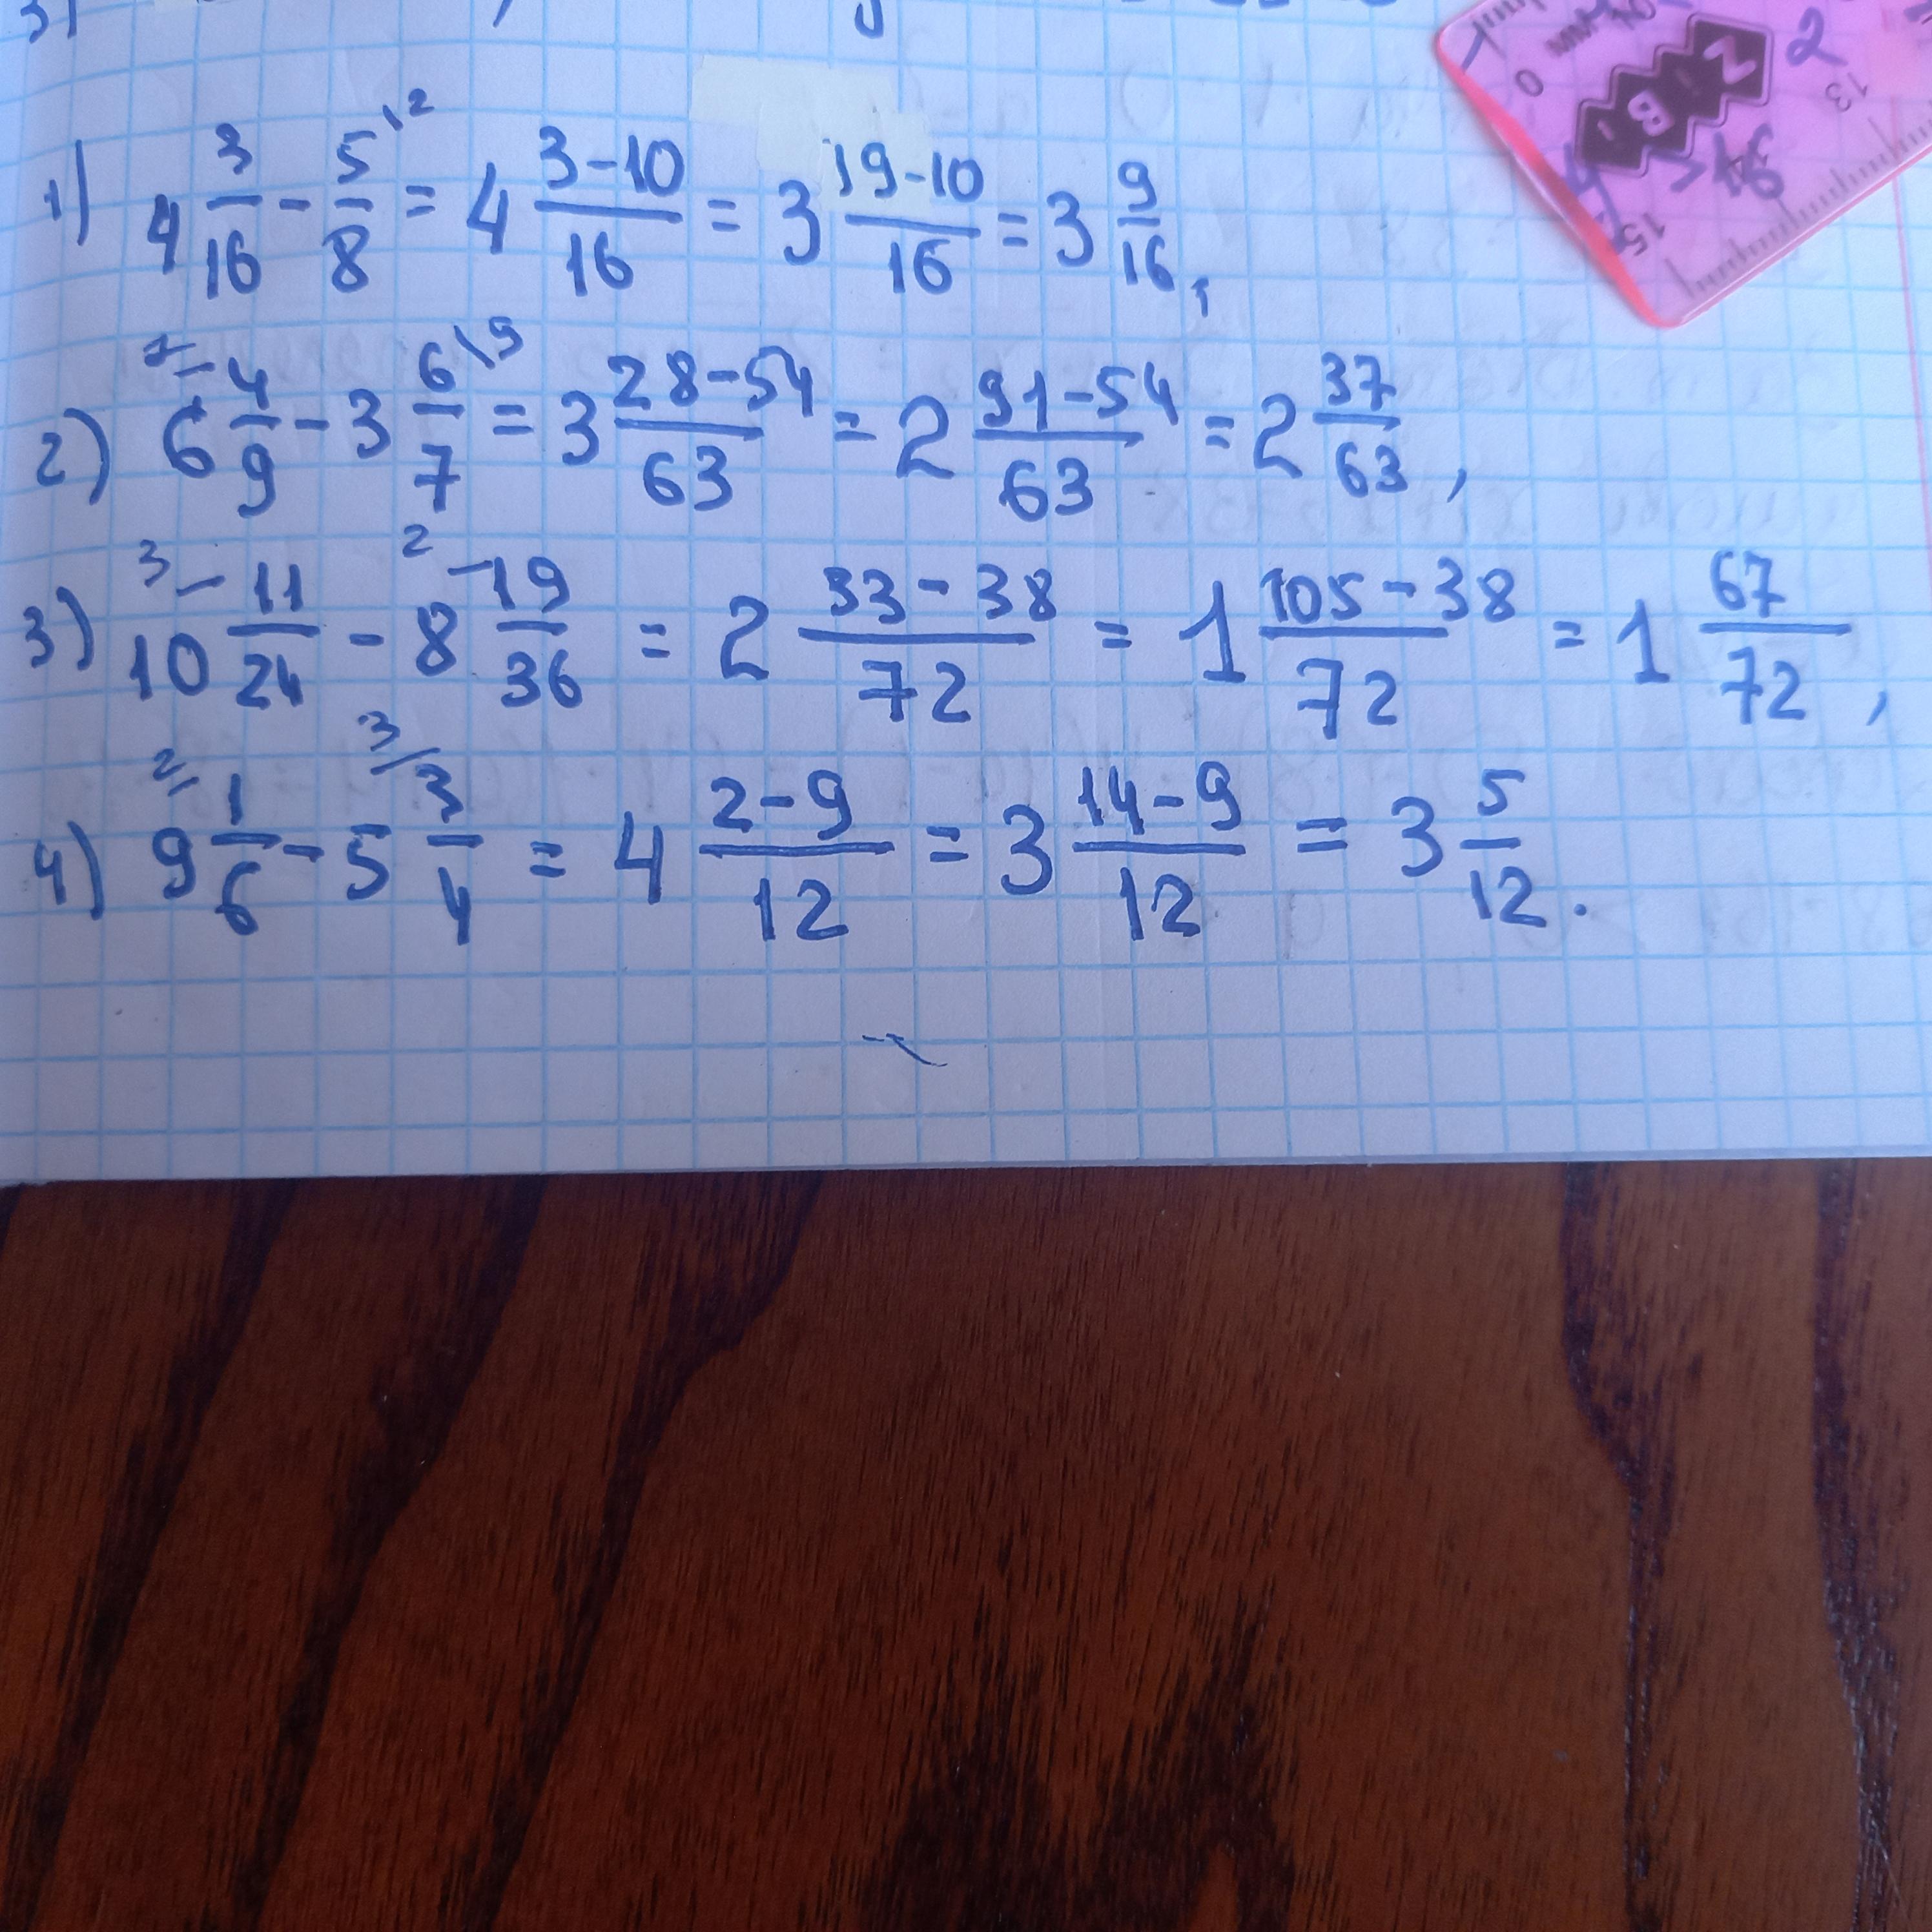 1) 4 3/16 - 5/8 \2 = 4 (3-10)/16 = 3 (19-10)/16 = 3 9/16,
2) 7 6 4/9 - 3 6/7 \9 = 3 (28-54)/63 = 2 (91-54)/63 = 2 37/63,
3) 3 10 11/24 - 2 8 19/36 = 2 (33-38)/72 = 1 (105-38)/72 = 1 67/72,
4) 2 9 1/6 - 3 5 3/4 = 4 (2-9)/12 = 3 (14-9)/12 = 3 5/12.
0
13
15